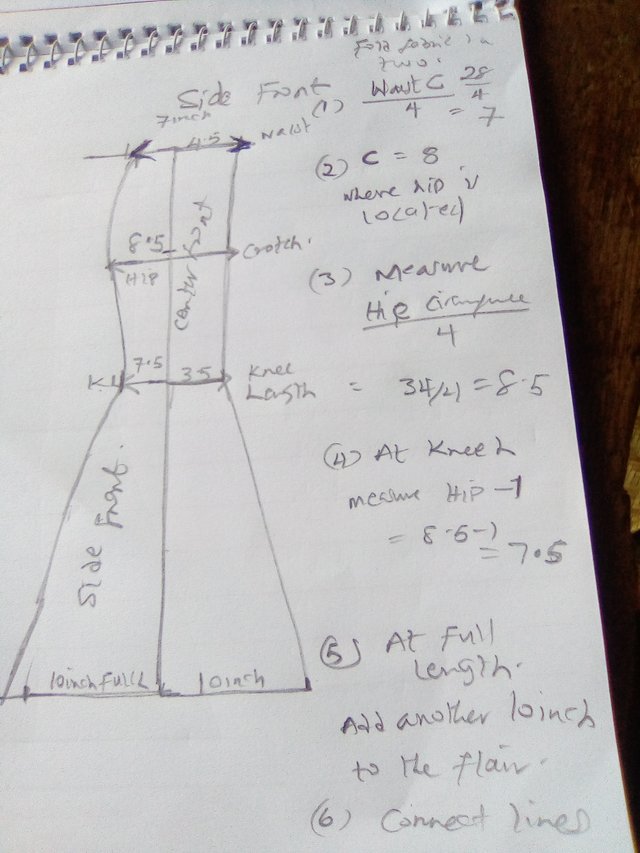 Fold fabric in
two.
Side Front
(1) Waist C / 4 28/4
= 7
7 inch
4.5
Waist
(2) C = 8
where hip is
located
8.5
Hip
Crotch.
Center Front
(3) Measure
Hip
4
= 34/4 = 8.5
7.5
3.5
K.L
Knee
Length
(4) At Knee L
measure Hip - 1
= 8.5-1
= 7.5
Side Front.
10inch Full L
10inch
(5) At Full
Length.
Add another 10inch
to the flair.
(6) Connect lines